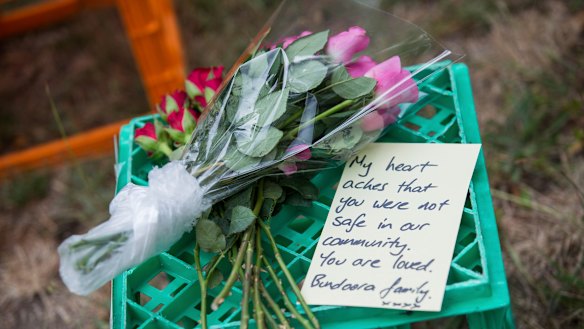 My heart
aches that
you were not
safe in our
community.
You are loved.
Bundoora family.
xxxx